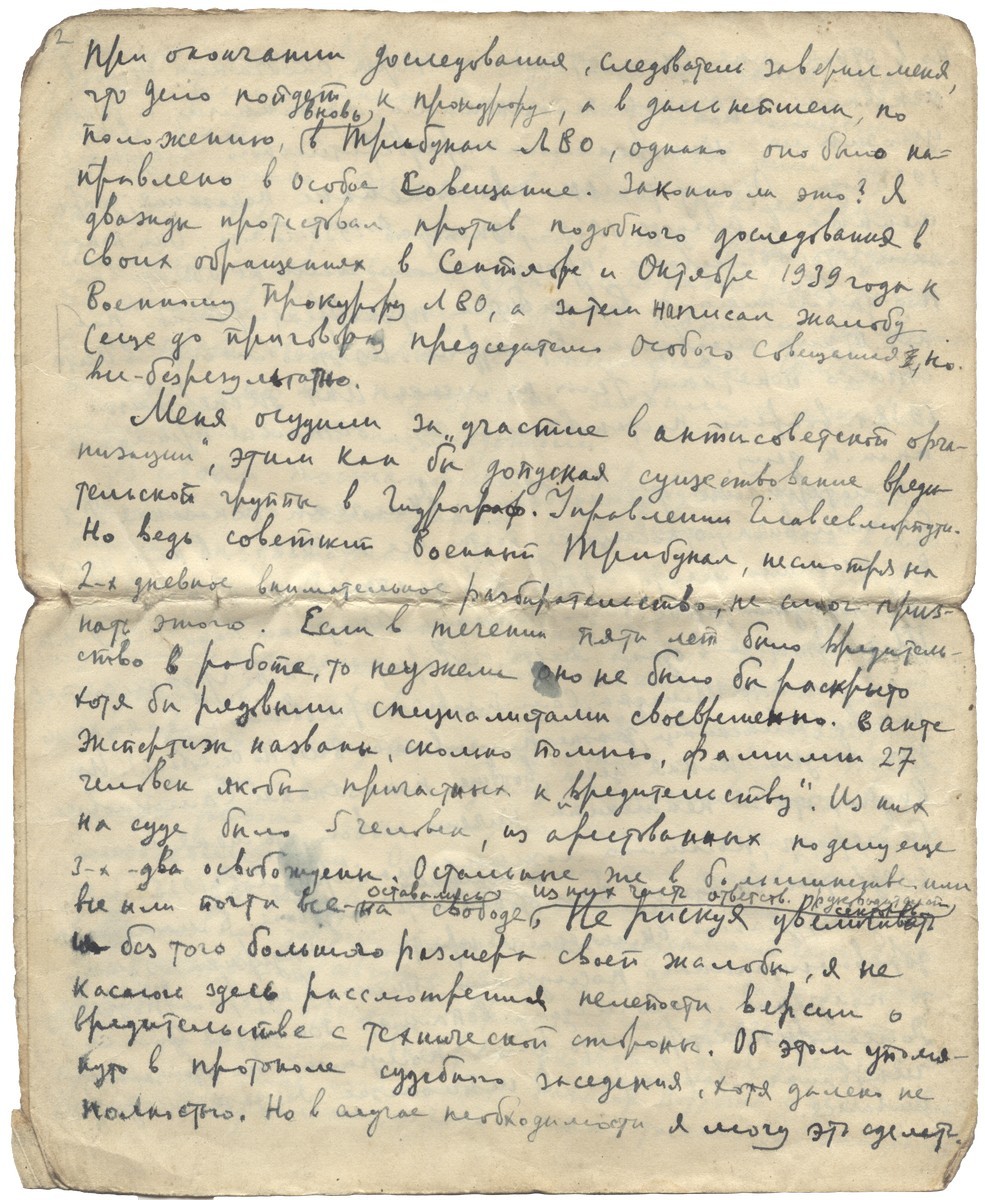 2
При окончании доследования, следователь заверил меня,
что дело пойдет к прокурору, а в дальнейшем, по
вновь
положению, в Трибунал ЛВО, однако оно было на-
правлено в Особое Совещание. Законно ли это? Я
дважды протестовал против подобного доследования в
своих обращениях в Сентябре и Октябре 1939 года к
Военному Прокурору ЛВО, а затем написал жалобу
(еще до приговора) председателю Особого Совещания, но
все-безрезультатно.
Меня осудили за „участие в антисоветской орга-
низации", этим как бы допуская существование вреди
тельской группы в Гидрограф. Управлении Главсевморпути.
Но ведь советский Военный Трибунал, несмотря на
2-х дневное внимательное разбирательство, не смог приз-
нать этого. Если в течении пяти лет было вредитель-
ство в работе, то неужели оно не было бы раскрыто
хотя бы рядовыми специалистами своевременно. В акте
экспертизы названы, сколько помню, фамилии 27
человек якобы причастных к „вредительству". Из них
на суде было 5 человек, из арестованных по делу еще
3-х - два освобождены. Остальные же в большинстве или
оставались из них часть ответств. руководителей
все или почти все - на свободе, Не рискуя увеличивать
и без того большого размера своей жалобы, я не
касаюсь здесь рассмотрения нелепости версии о
вредительстве с технической стороны. Об этом упомя-
нуто в протоколе судебного заседания, хотя далеко не
полностью. Но в случае необходимости я могу это сделать.